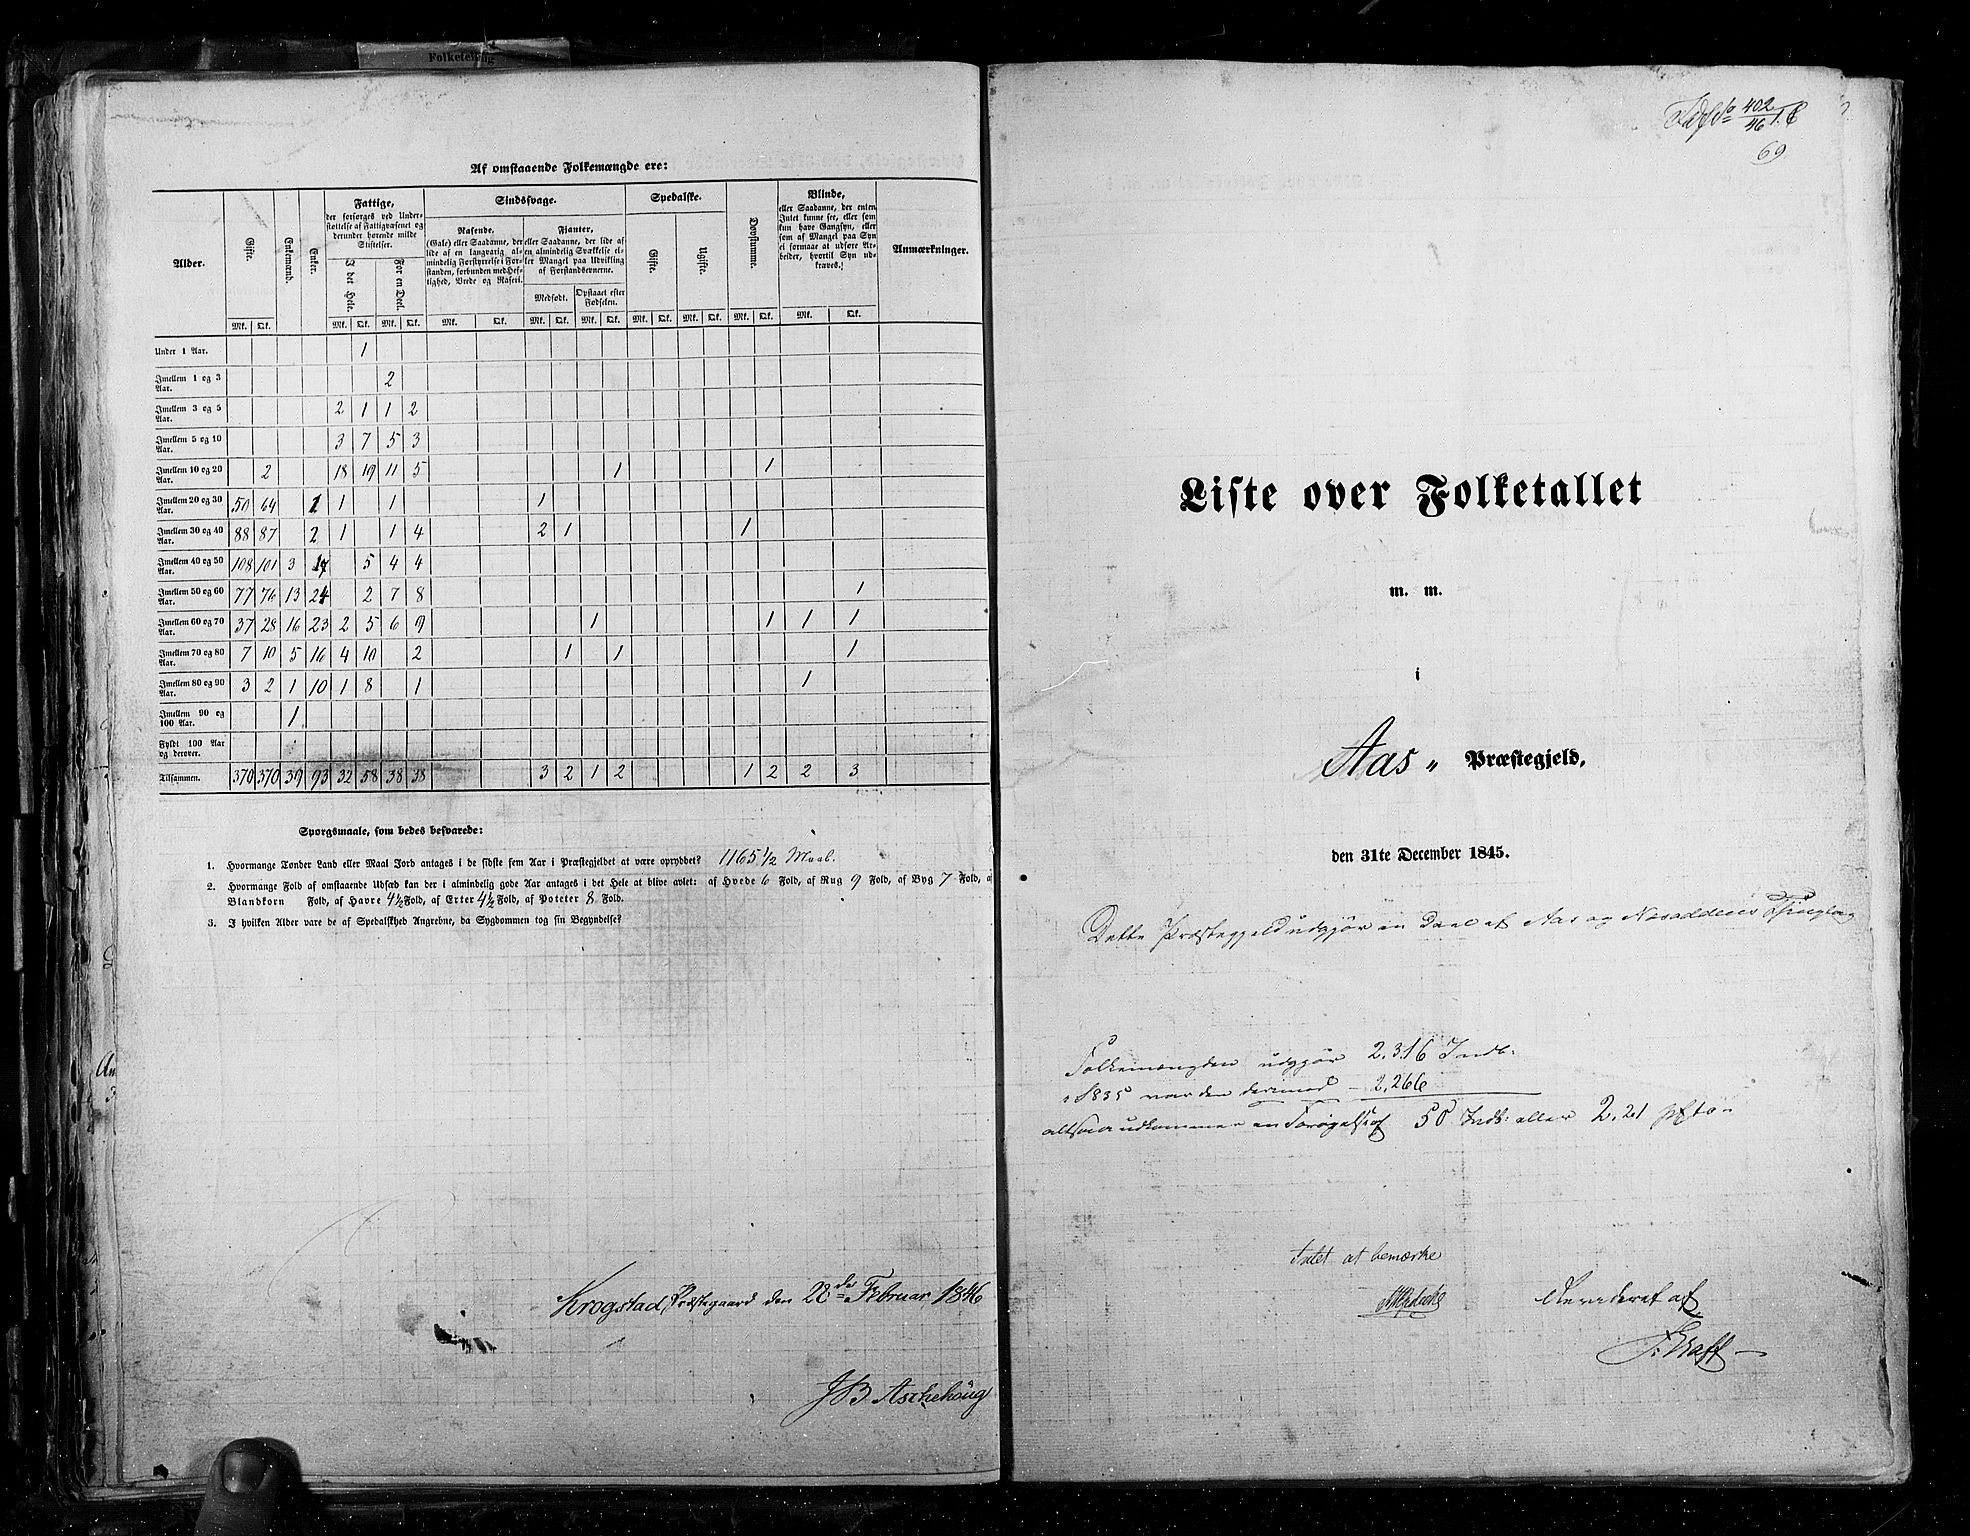 Folketelling
Af omstaaende Folkemængde ere:
Alder.
Gifte.
Enkemænd.
Enker.
Fattige,
der forsørges ved Under-
støttelse af Fattigvæsenet og
derunder hørende milde
Stiftelser.
I det Hele.
For en Deel.
Sindssvage.
Rasende,
(Gale) eller Saadanne, der
lide af en langvarig al-
mindelig Forstyrrelse i For-
standen, forbunden med Hef-
tighed, Vrede og Raseri.
Fianter,
eller Saadanne, der lide af
en almindelig Svækkelse el-
ler Mangel paa Udvikling
af Forstandsevnerne.
Medfødt.
Opstaaet efter
Fødselen.
Spedalske.
Gifte.
Ugifte.
Døvstumme.
Blinde,
eller Saadanne, der enten
Intet kunne see, eller som
kun have Gangsyn, eller
som af Mangel paa Syn
ei formaae at udføre Ar-
beider, hvortil Syn ud-
kræves.
Anmærkninger.
Mk. Qk. Mk. Qk. Mk. Qk. Mk. Qk. Mk. Qk. Mk. Qk. Mk. Qk. Mk. Qk. Mk. Qk. Mk. Qk.
Under 1 Aar. 1
Imellem 1 og 3 Aar. 2
Imellem 3 og 5 Aar. 2 1 1 2
Imellem 5 og 10 Aar. 3 7 5 3
Imellem 10 og 20 Aar. 2 18 19 11 5 1 1
Imellem 20 og 30 Aar. 50 64 1 1 1 1
Imellem 30 og 40 Aar. 88 87 2 1 1 4 2 1 1
Imellem 40 og 50 Aar. 108 101 3 17 5 4 4
Imellem 50 og 60 Aar. 77 76 13 24 2 7 8 1
Imellem 60 og 70 Aar. 37 28 16 23 2 5 6 9 1 1 1 1
Imellem 70 og 80 Aar. 7 10 5 16 4 10 2 1 1 1
Imellem 80 og 90 Aar. 3 2 1 10 1 8 1 1
Imellem 90 og 100 Aar. 1
Fyldt 100 Aar og derover.
Tilsammen. 370 370 39 93 32 58 38 38 3 2 1 2 1 2 2 3
Spørgsmaale, som bedes besvarede:
1. Hvormange Tønder Land eller Maal Jord antages i de sidste fem Aar i Præstegjeldet at være opryddet? 1165 1/2 Maal.
2. Hvormange Fold af omstaaende Udsæd kan der i almindelig gode Aar antages i det Hele at blive avlet: af Hvede 6 Fold, af Rug 9 Fold, af Byg 7 Fold, af
Blandkorn Fold, af Havre 4 1/2 Fold, af Erter 4 1/2 Fold, af Poteter 8 Fold.
3. I hvilken Alder vare de af Spedalskhed Angrebne, da Sygdommen tog sin Begyndelse?
Krogstad Præstegaard den 28de Februar 1846
JB Aschehoug
402
46
69
Liste over Folketallet
m. m.
i
Aas „ Præstegjeld,
den 31te December 1845.
Dette Præstegjeld udgjør en Deel af Aas og Næsoddens Thinglag
Folkemængden udgjør 2,316 Indb:
i 1835 var den derimod – 2,266
altsaa udkommer en Forøgelse af 50 Indb: eller 2,21 pCto.
Intet at bemærke
Revideret af